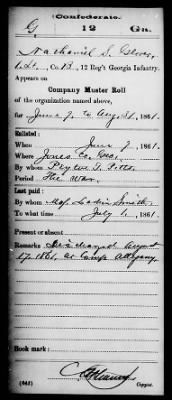 Confederate.
G 12 Ga.
Nathaniel S.
1 Lt., Co. B, 12 Reg't Georgia Infantry.
Appears on
Company Muster Roll
of the organization named above,
for June 7 to Aug 31, 1861.
Enlisted:
When June 7, 1861.
Where Jones Co. Geo.
By whom
Period The War.
Last paid:
By whom Maj. Larkin Smith
To what time July 1, 1861.
Present or absent
Remarks: Discharged August
17, 1861, at Camp Allegany
Book mark:
(642) Copyist.